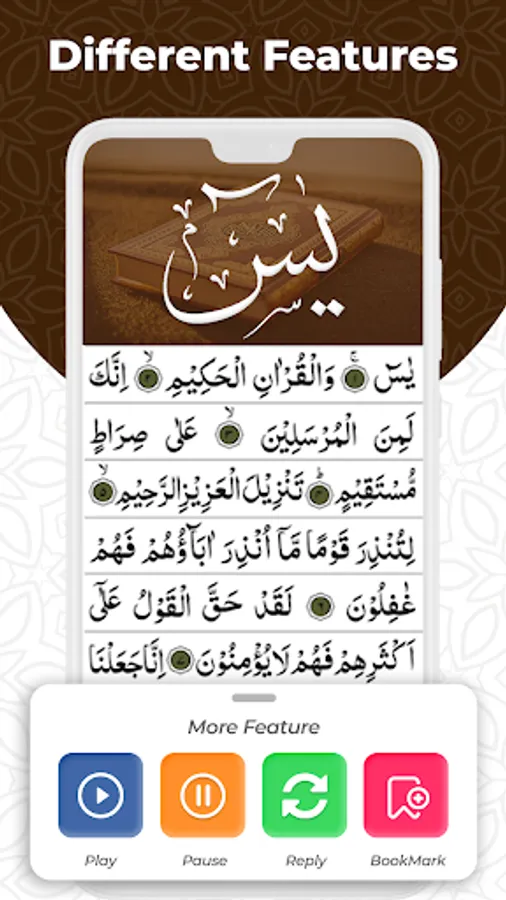 Different Features
يس
يٰسٓ ۚ ﴿۱﴾ وَالْقُرْاٰنِ الْحَكِيْمِ ۙ ﴿۲﴾ اِنَّكَ
لَمِنَ الْمُرْسَلِيْنَ ۙ ﴿۳﴾ عَلٰى صِرَاطٍ
مُّسْتَقِيْمٍ ؕ ﴿۴﴾ تَنْزِيْلَ الْعَزِيْزِ الرَّحِيْمِ ۙ ﴿۵﴾
لِتُنْذِرَ قَوْمًا مَّاۤ اُنْذِرَ اٰبَآؤُهُمْ فَهُمْ
غٰفِلُوْنَ ﴿۶﴾ لَقَدْ حَقَّ الْقَوْلُ عَلٰٓى
اَكْثَرِهِمْ فَهُمْ لَا يُؤْمِنُوْنَ ﴿۷﴾ اِنَّا جَعَلْنَا
More Feature
Play
Pause
Reply
BookMark